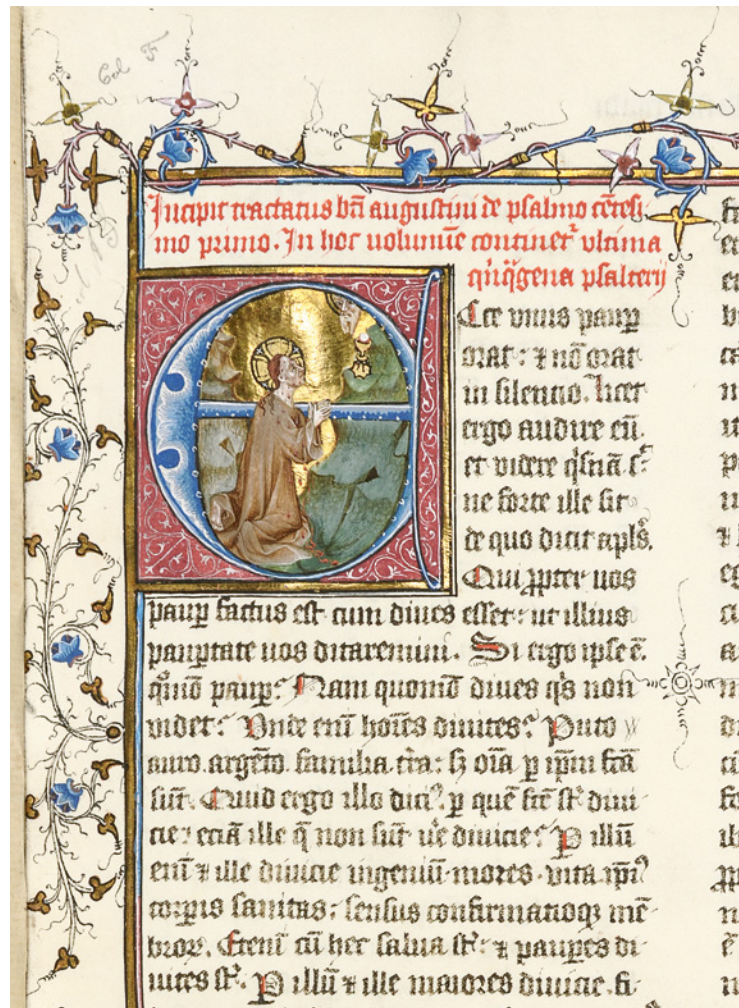 Col F
Incipit tractatus bti augustini de psalmo cētesi-
mo primo. In hoc uolumīe continet᷑ vltima
q̄nq̄gena psalterij
Ecce vnus paup
orat: ⁊ nō orat
in silentio. licet
ergo audire eū.
et videre q̄snā ē:
ne forte ille sit
de quo dicit apl̄s.
Qui ꝓpter uos
paup factus est cum diues esset: ut illius
paup̄tate uos ditaremini. Si ergo ipse ē.
quō paup: Nam quomō diues q̄s non
videt: Vnde enī hoīes diuites: Puto
auro. argēto. familia. tr̄a: sꝫ oīa ꝑ ip̄m fc̄ā
sūt. Quid ergo illo dici⁹. ꝑ quē fc̄e st̄ diui-
cie: eciā ille q̄ non sūt ue diuicie: P illū
enī ⁊ ille diuicie ingeniū. mores. vita. ip̄i⁹
corꝑis sanitas: sensus confirmatioqꝫ mē-
broꝝ. Etenī cū hec salua st̄: ⁊ pauꝑes di-
uites st̄. P illū ⁊ ille maiores diuicie. fi-